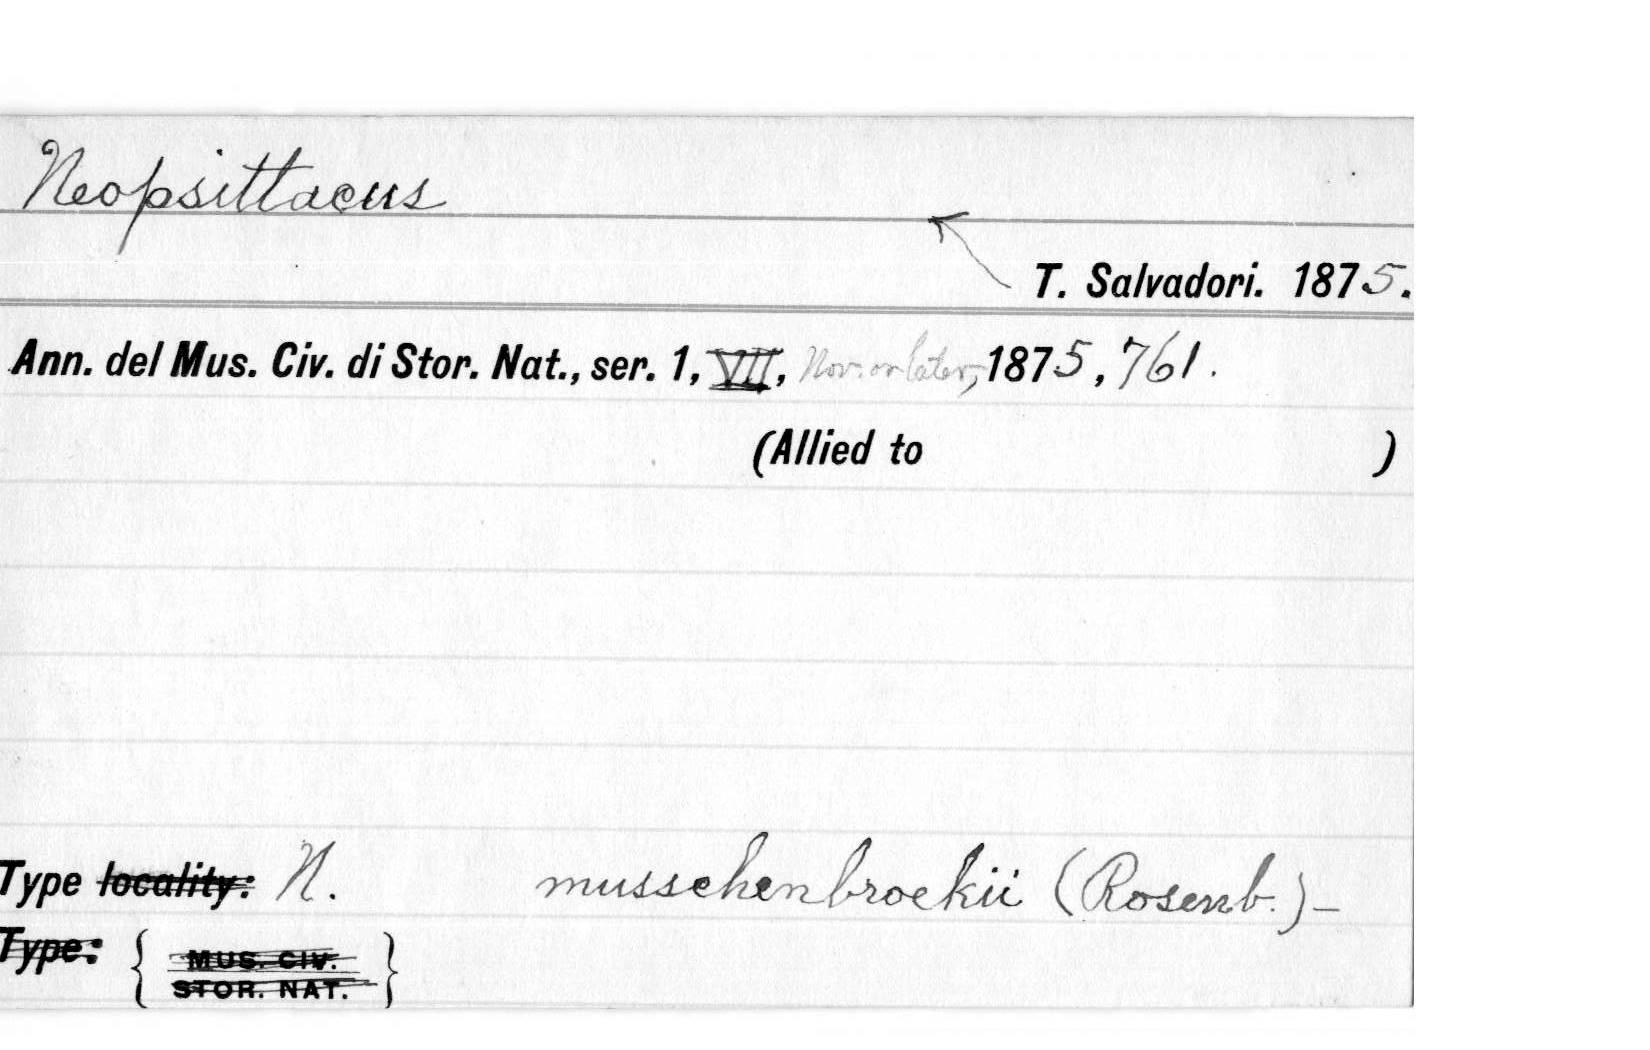 Neopsittacus
T. Salvadori. 1875.
Ann. del Mus. Civ. di Stor. Nat., ser. 1, VII, Nov. or later, 1875, 761.
(Allied to )
Type locality: N. musschenbroekii (Rosenb.)-
Type: { MUS. CIV.
STOR. NAT. }